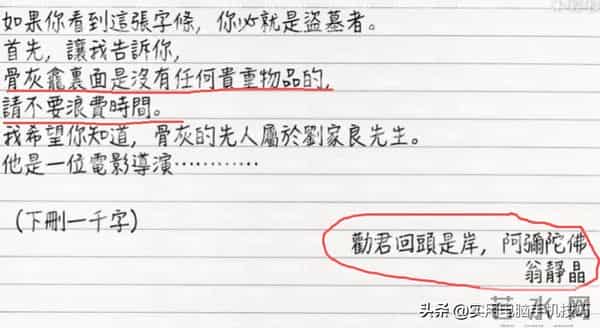 如果你看到這張字條，你必就是盜墓者。
首先，讓我告訴你，
骨灰龕裏面是沒有任何貴重物品的，
請不要浪費時間。
我希望你知道，骨灰的先人屬於劉家良先生。
他是一位電影導演…………
（下刪一千字）
勸君回頭是岸，阿彌陀佛
翁靜晶
头条 @实用电脑手机技巧